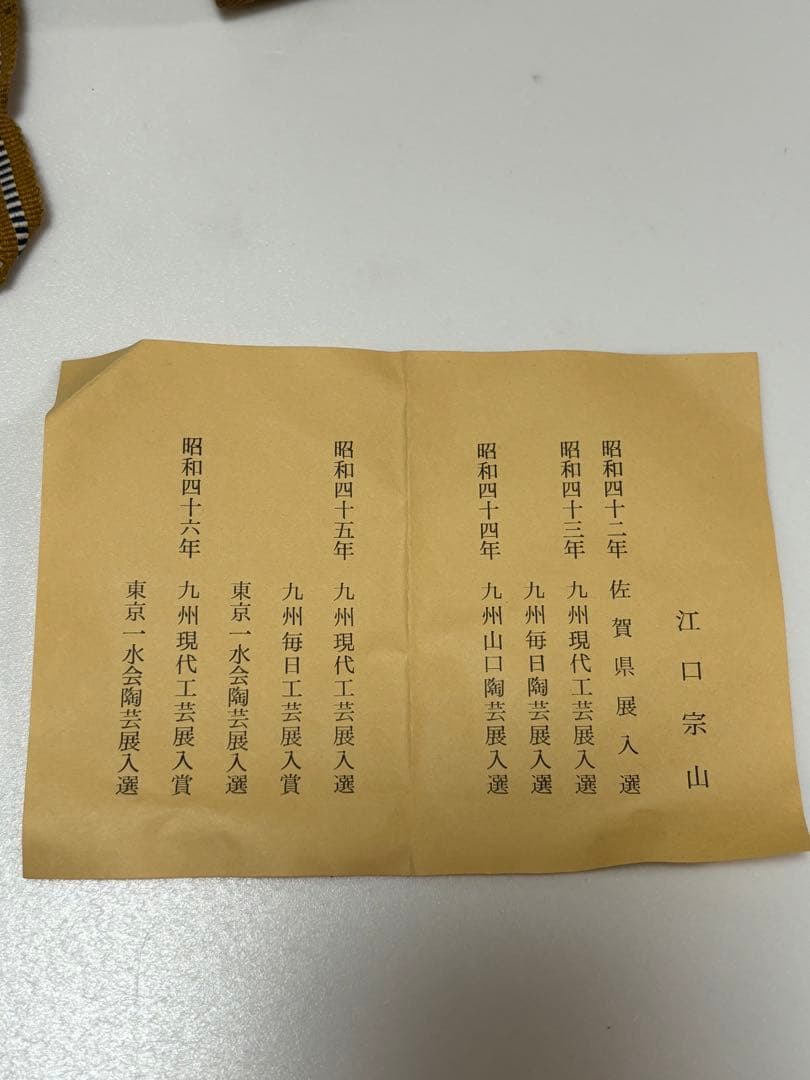 江口宗山
昭和四十二年 佐賀県展入選
昭和四十三年 九州現代工芸展入選
九州毎日陶芸展入選
昭和四十四年 九州山口陶芸展入選
昭和四十五年 九州現代工芸展入選
九州毎日工芸展入賞
東京一水会陶芸展入選
昭和四十六年 九州現代工芸展入賞
東京一水会陶芸展入選